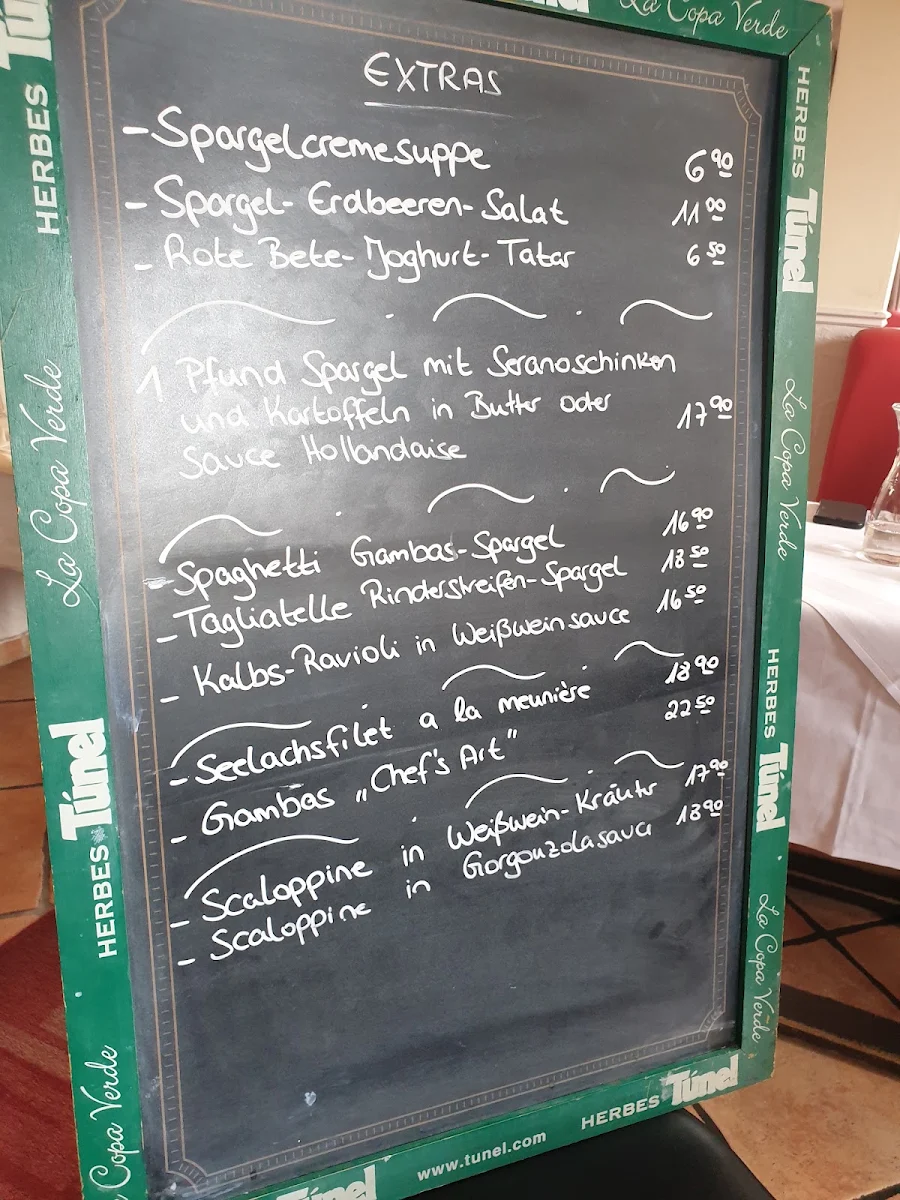 EXTRAS
- Spargelcremesuppe 6 90
- Spargel-Erdbeeren-Salat 11 00
- Rote Bete-Joghurt-Tatar 6 50
1 Pfund Spargel mit Seranoschinken
und Kartoffeln in Butter oder 17 90
Sauce Hollandaise
- Spaghetti Gambas-Spargel 16 90
- Tagliatelle Rinderstreifen-Spargel 18 50
- Kalbs-Ravioli in Weißweinsauce 16 50
- Seelachsfilet a la meunière 18 90
- Gambas „Chef's Art" 22 50
- Scaloppine in Weißwein-Kräuter 17 90
- Scaloppine in Gorgonzolasauce 18 90
La Copa Verde
HERBES Túnel
La Copa Verde
HERBES Túnel
La Copa Verde
HERBES Túnel
La Copa Verde
HERBES Túnel
La Copa Verde
www.tunel.com
HERBES Túnel
Túnel